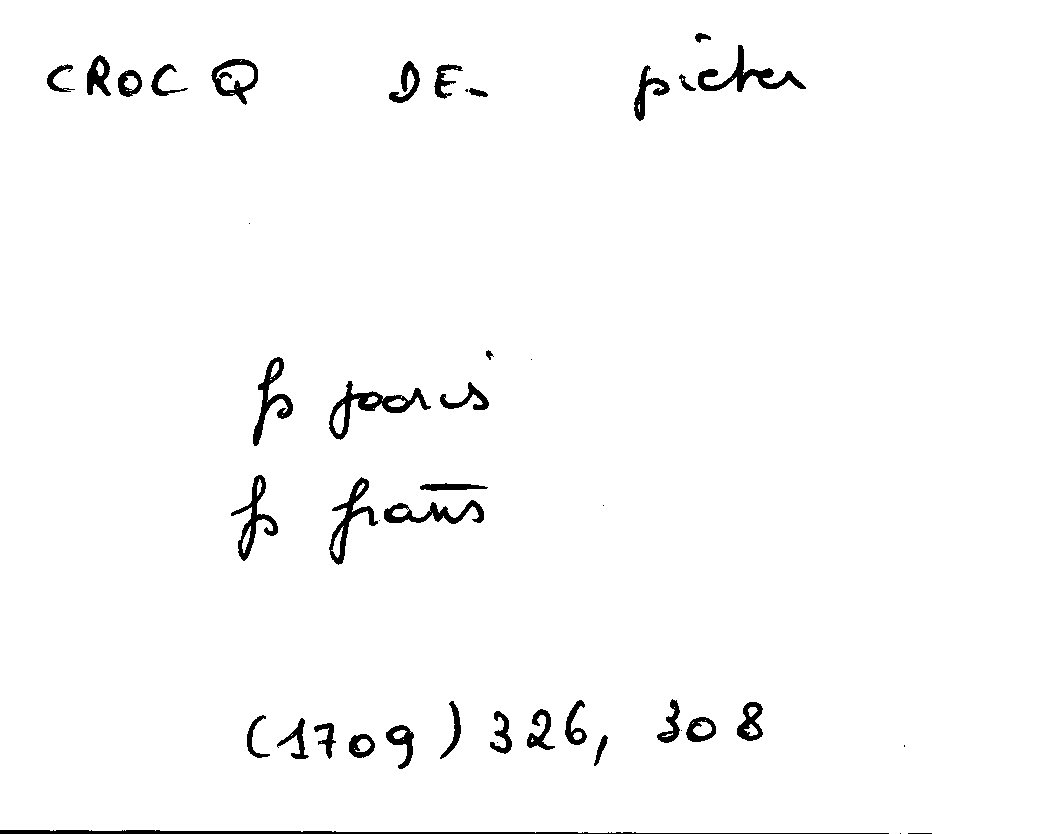 CROCQ DE- pieter
fs jooris
fs frans
(1709) 326, 308